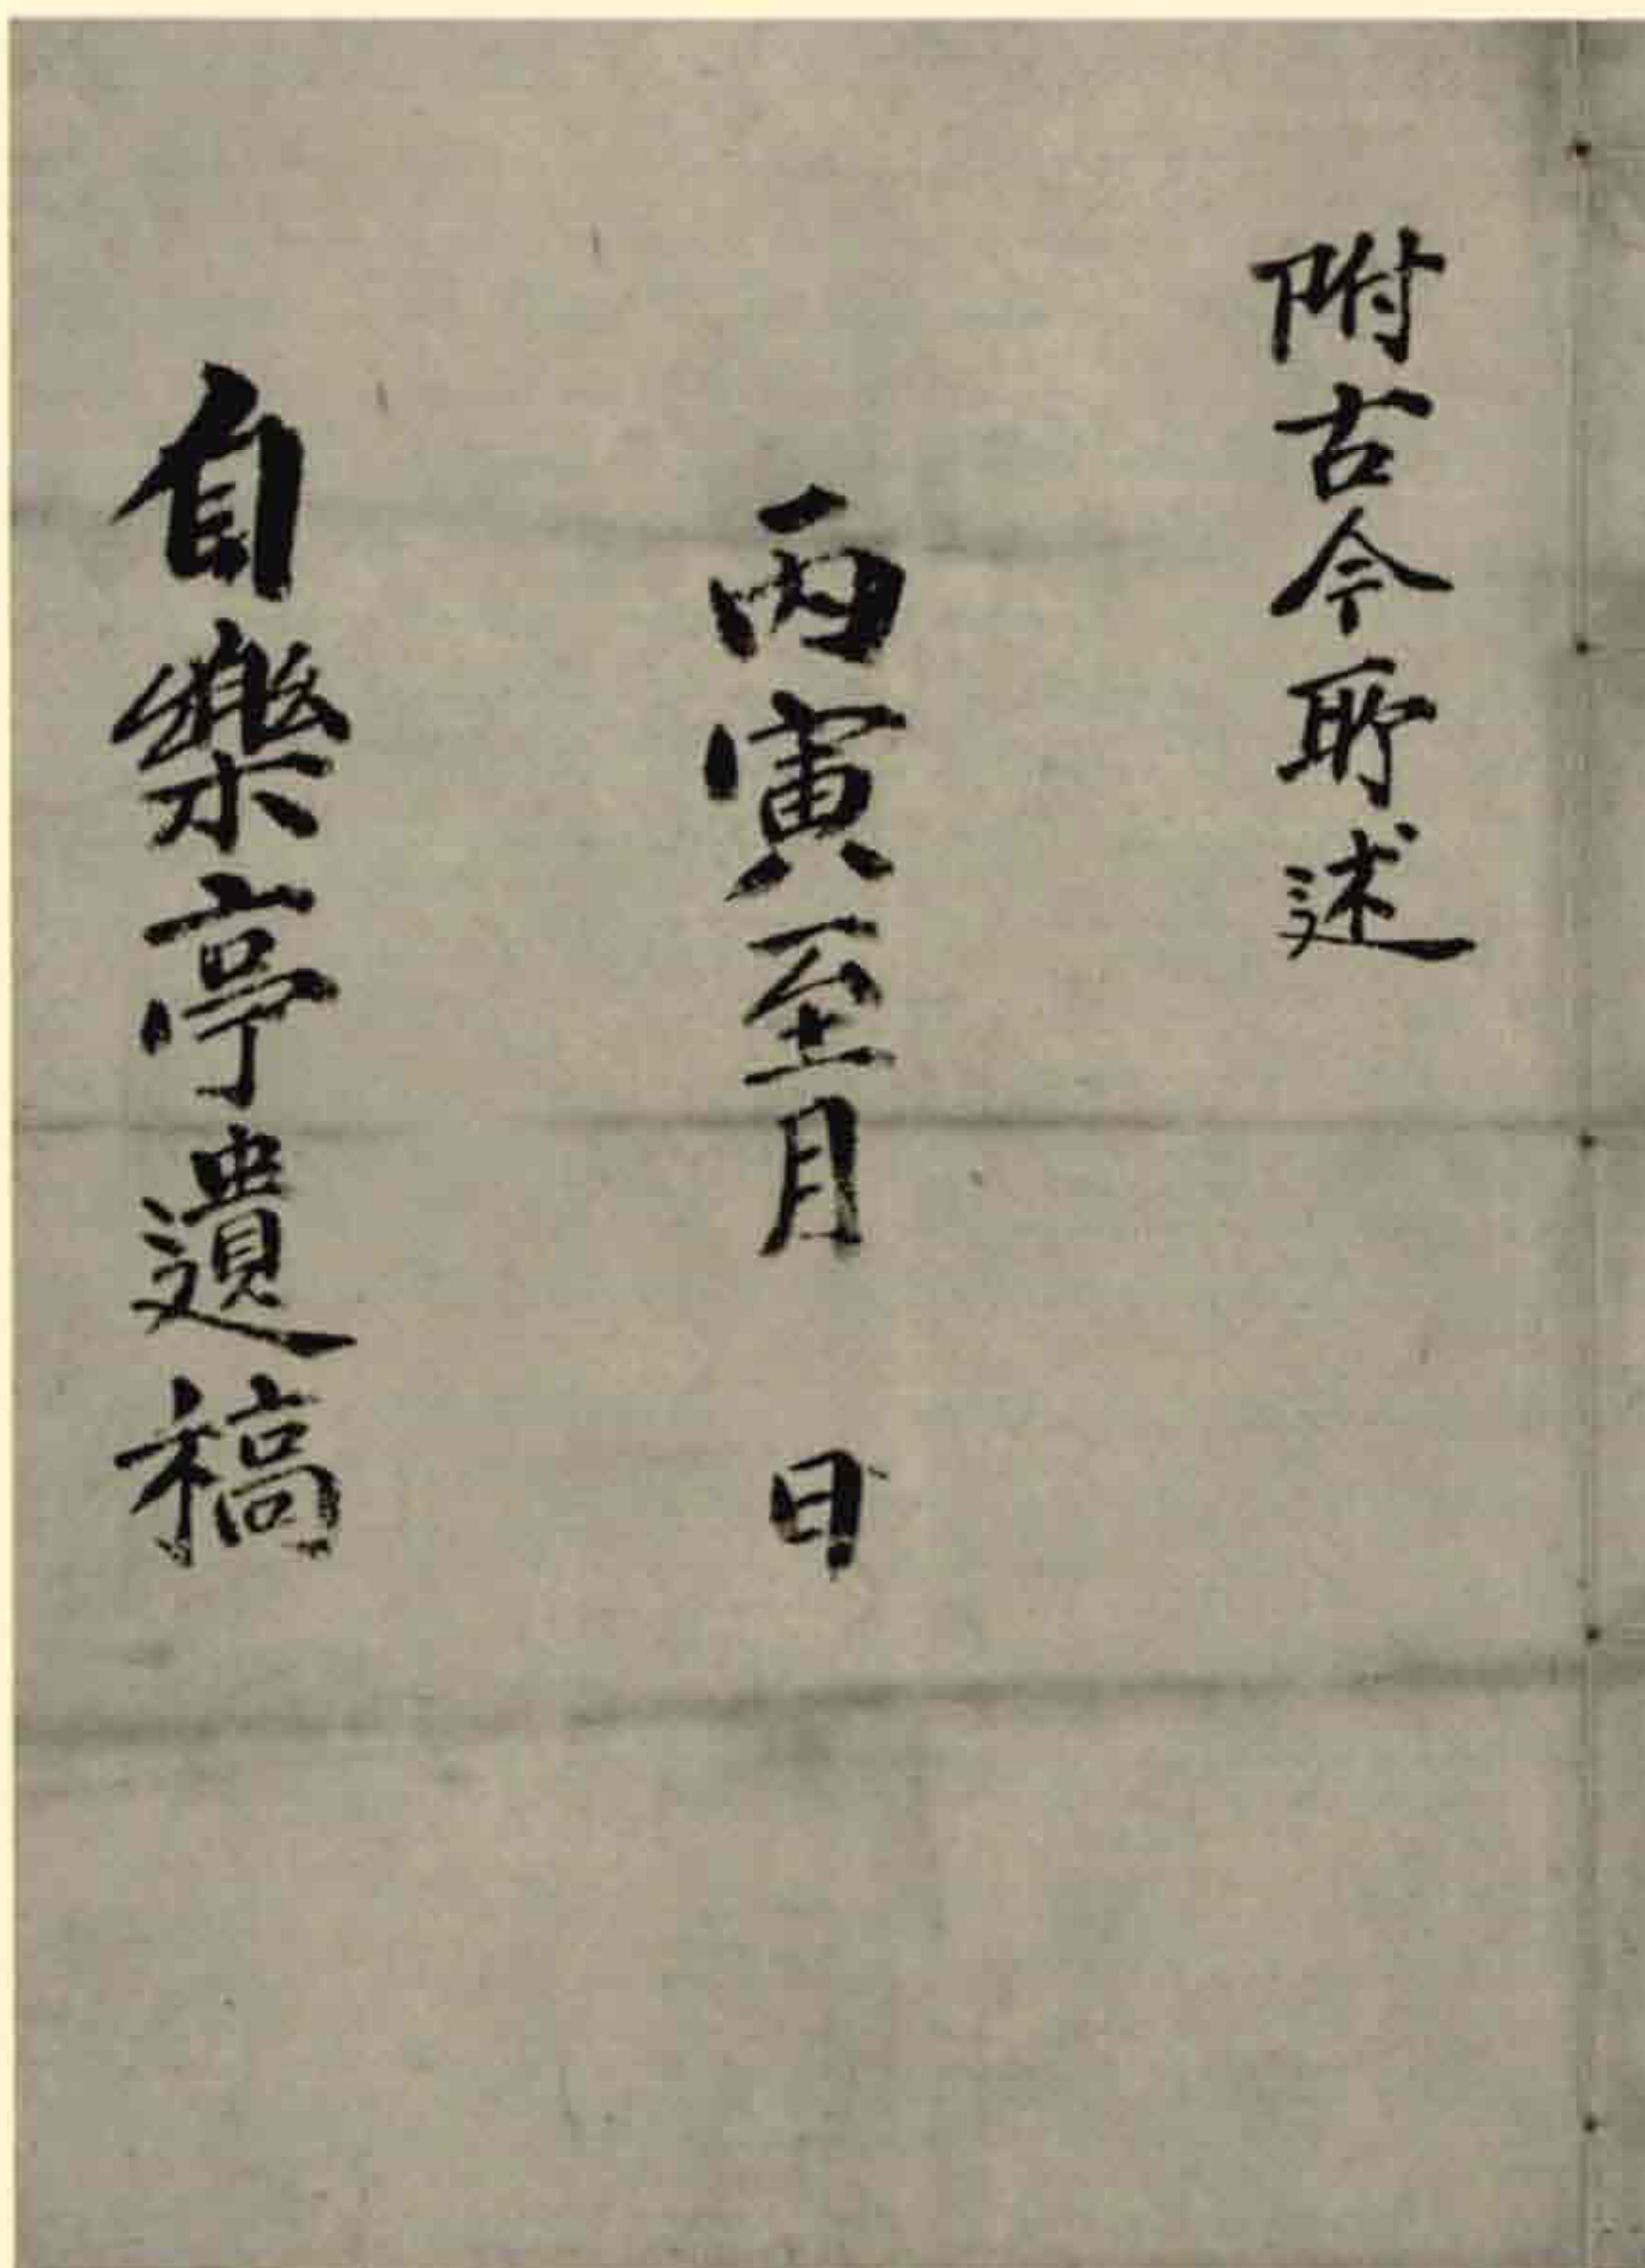 附古今所述
丙寅至月 日
自樂亭遺稿